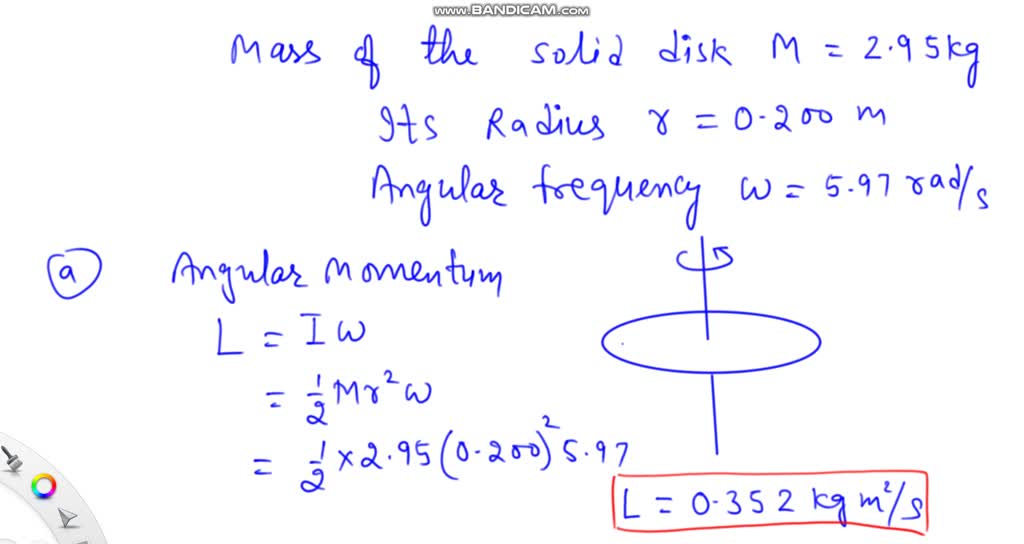 www.BANDICAM.com
Mass of the solid disk M = 2.95 kg
Its Radius r = 0.200 m
Angular frequency ω = 5.97 rad/s
(a) Angular Momentum
L = I ω
= 1/2 Mr² ω
= 1/2 × 2.95 (0.200)² 5.97
L = 0.352 kg m²/s